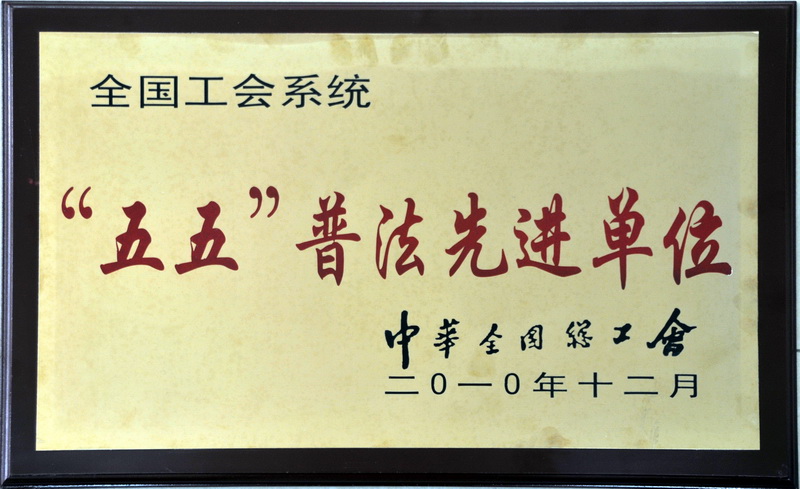 全国工会系统
“五五”普法先进单位
中華全国總工會
二0一0年十二月